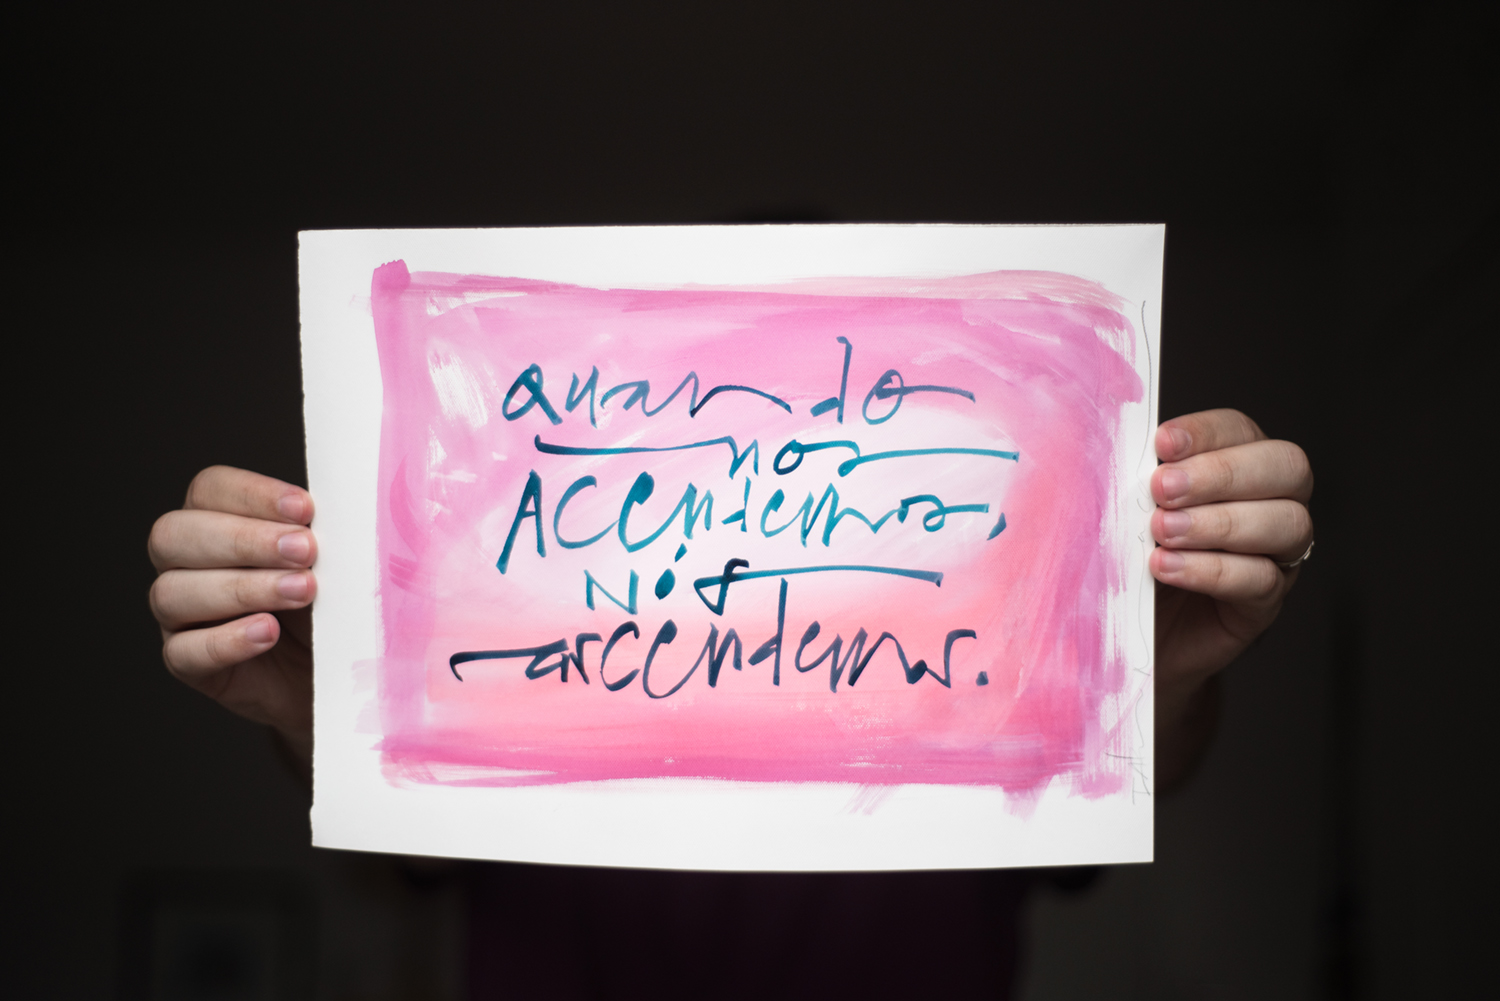 quando
nos
Acendemos,
Nós
ascendemos.